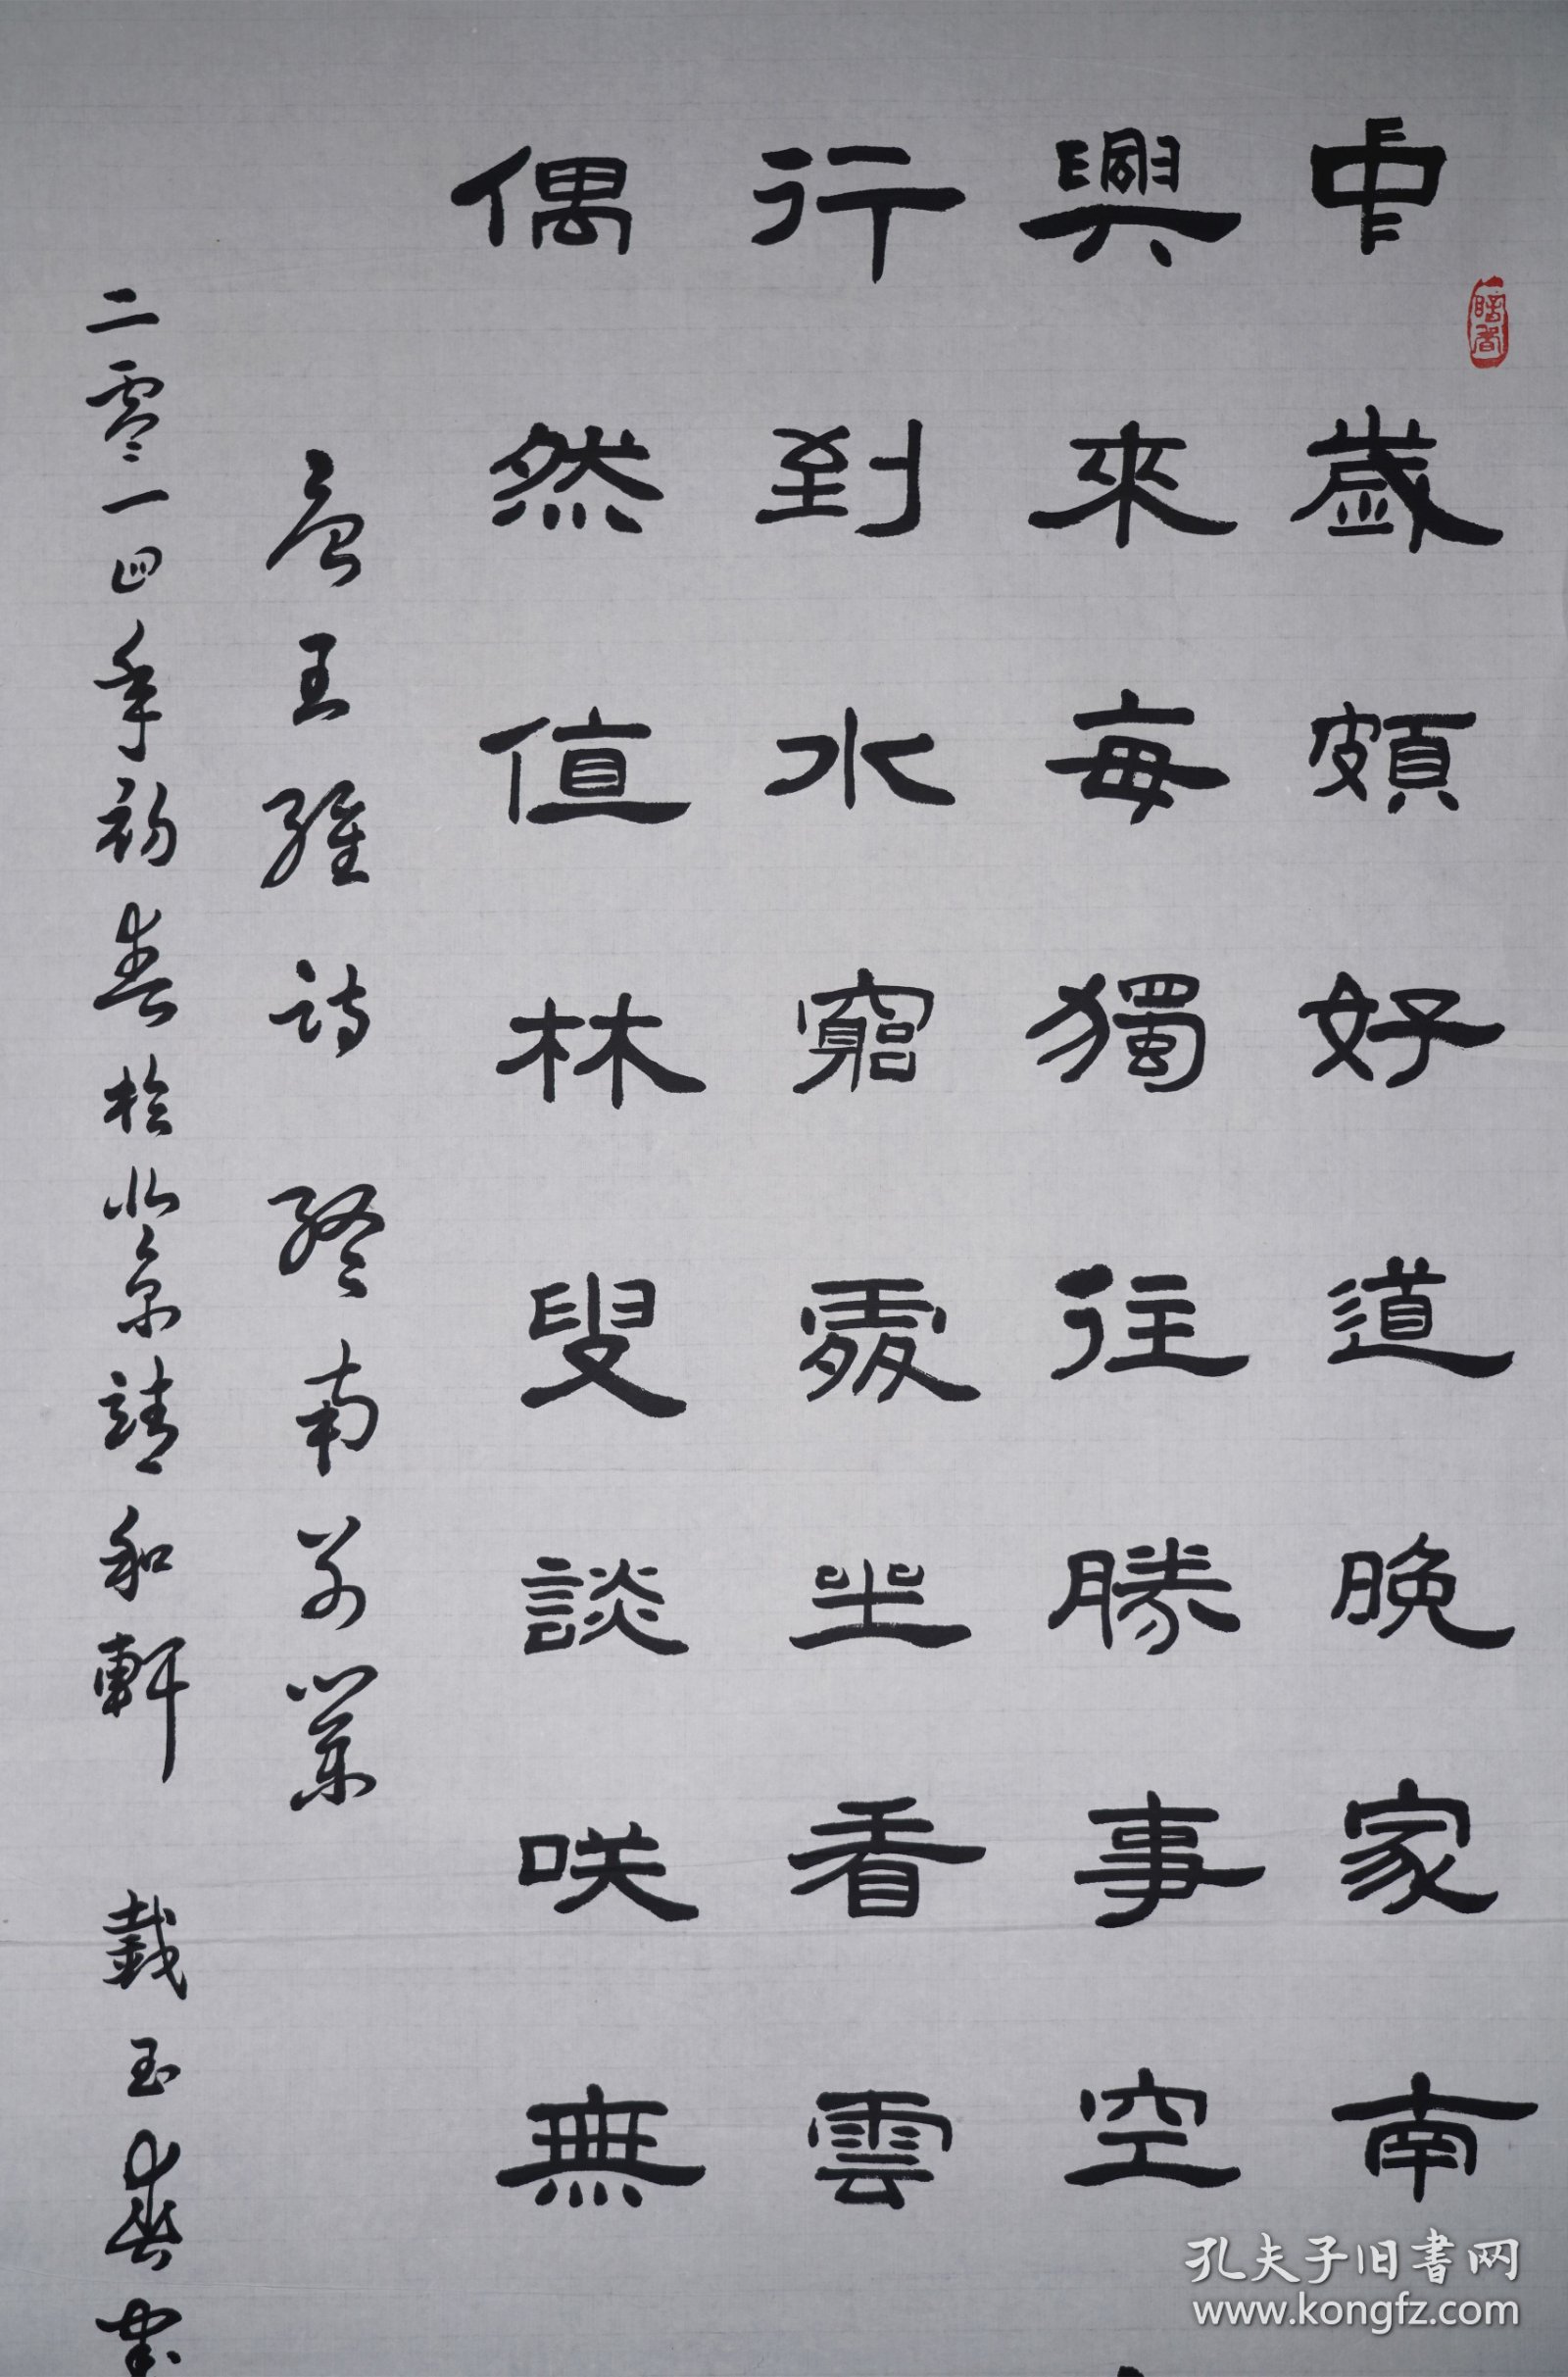 中歲頗好道晚家南
興來每獨往勝事空
行到水窮處坐看雲
偶然值林叟談咲無
唐王維詩 終南別業
二零一四年初春於北京靖和軒 戴玉春書
孔夫子旧書网
www.kongfz.com